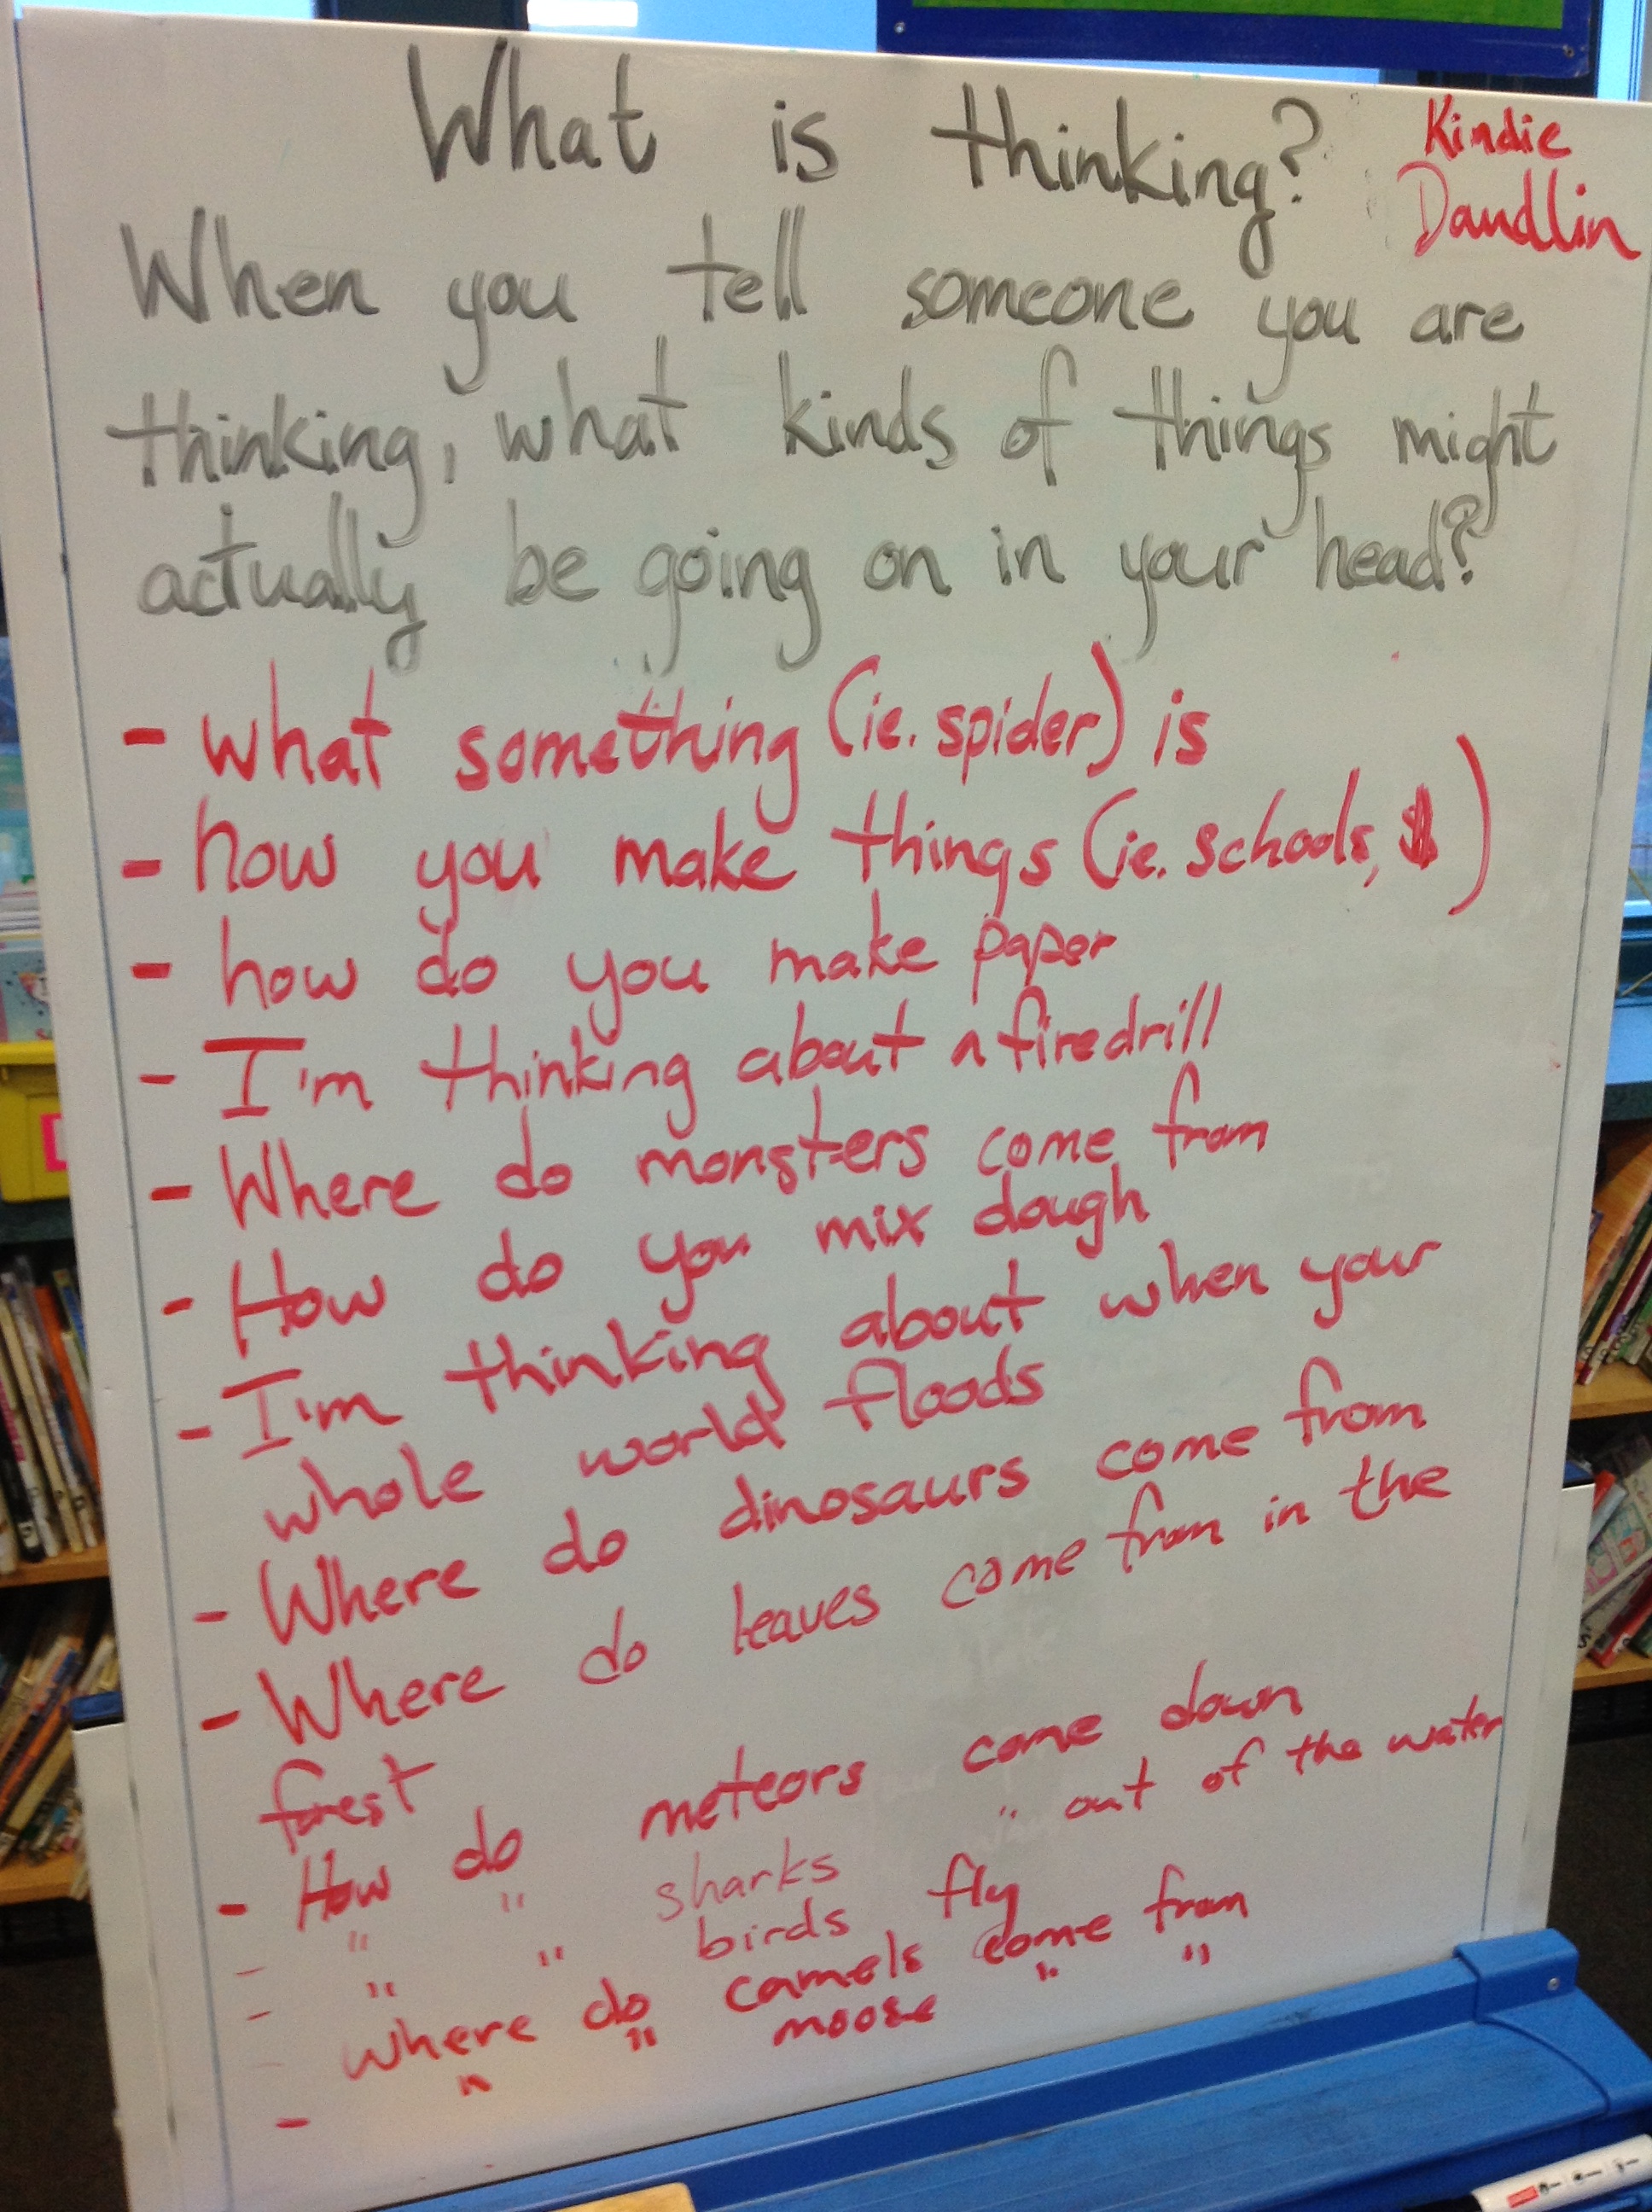 What is thinking?
Kindie
Dandlin
When you tell someone you are
thinking, what kinds of things might
actually be going on in your head?
- what something (ie. spider) is
- how you make things (ie. schools, $)
- how do you make paper
- I'm thinking about a firedrill
- Where do monsters come from
- How do you mix dough
- I'm thinking about when your
whole world floods
- Where do dinosaurs come from
- Where do leaves come from in the
forest
- How do meteors come down
- " " sharks " out of the water
- " " birds fly
- where do camels come from
- " " moose " "